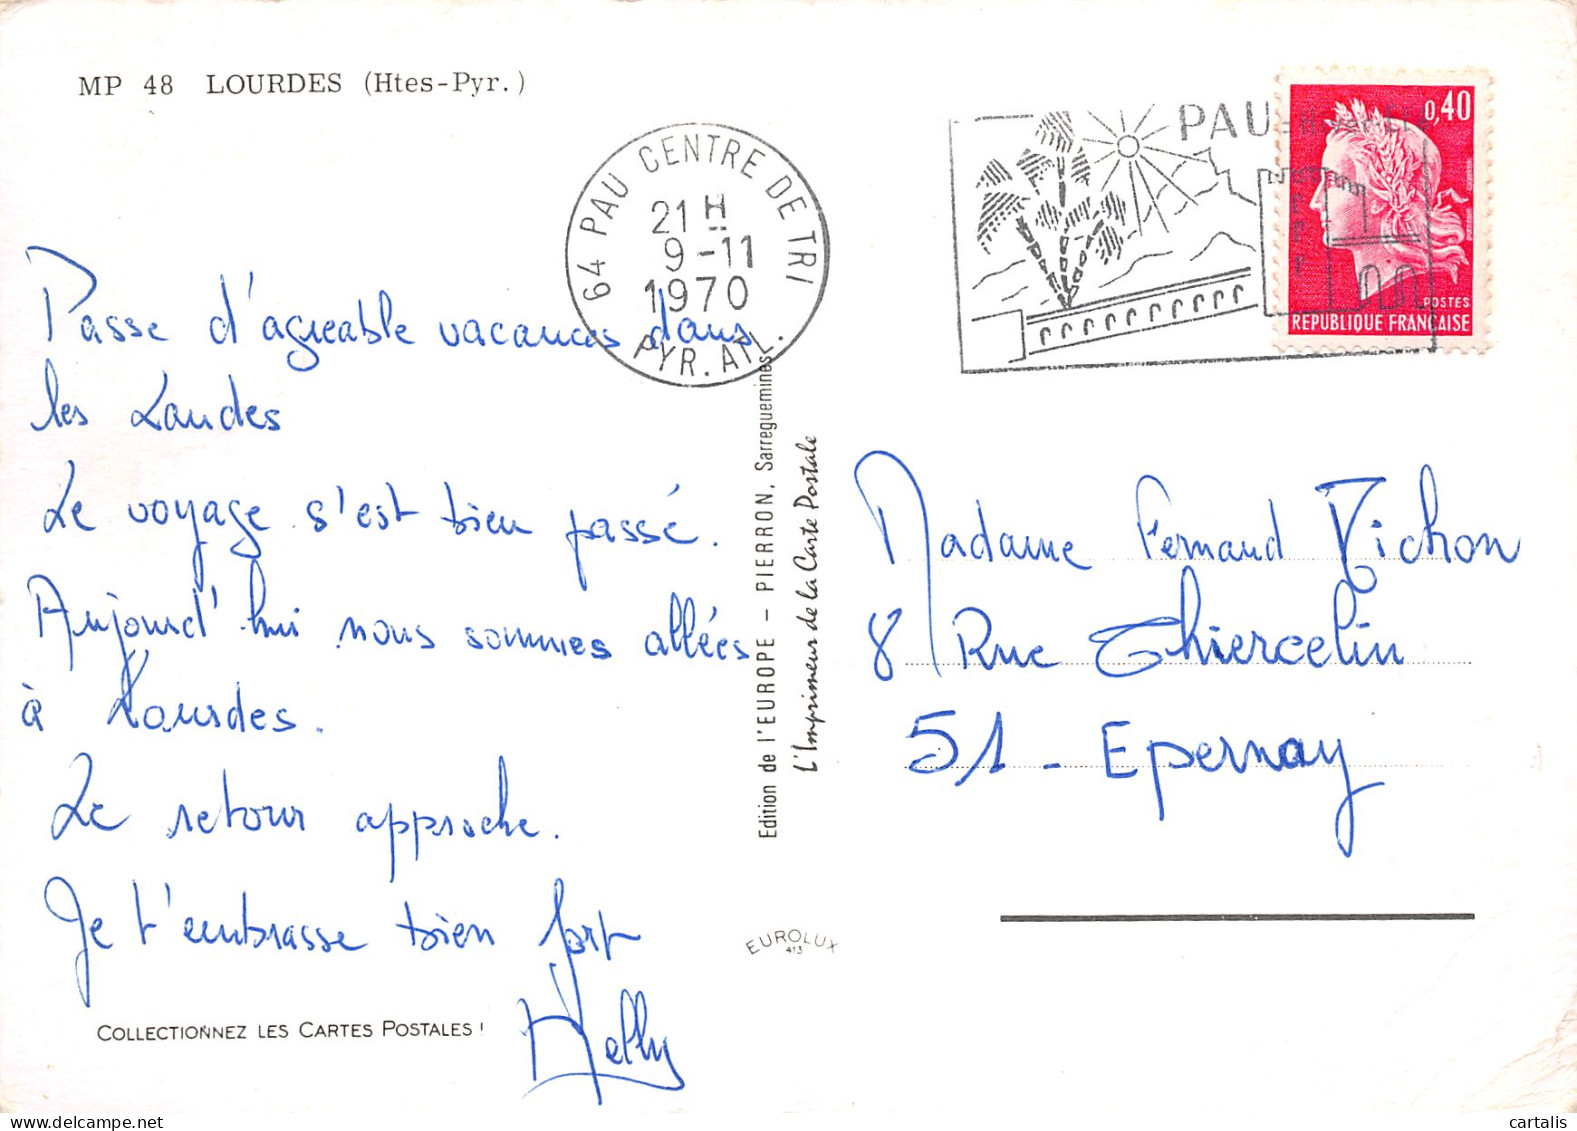 MP 48 LOURDES (Htes-Pyr.)
64 PAU CENTRE DE TRI
21 H
9-11
1970
PYR. ATL.
PAU
0,40
POSTES
REPUBLIQUE FRANÇAISE
Passe d'agreable vacances dans
les Landes
Le voyage s'est bien passé.
Aujourd'hui nous sommes allées
à Lourdes.
Le retour approche.
Je t'embrasse bien fort
Nelly
COLLECTIONNEZ LES CARTES POSTALES !
Edition de l'EUROPE - PIERRON, Sarreguemines
L'Imprimeur de la Carte Postale
EUROLUX
413
Madame Fernand Michon
8 Rue Thiercelin
51 - Epernay
cartalis